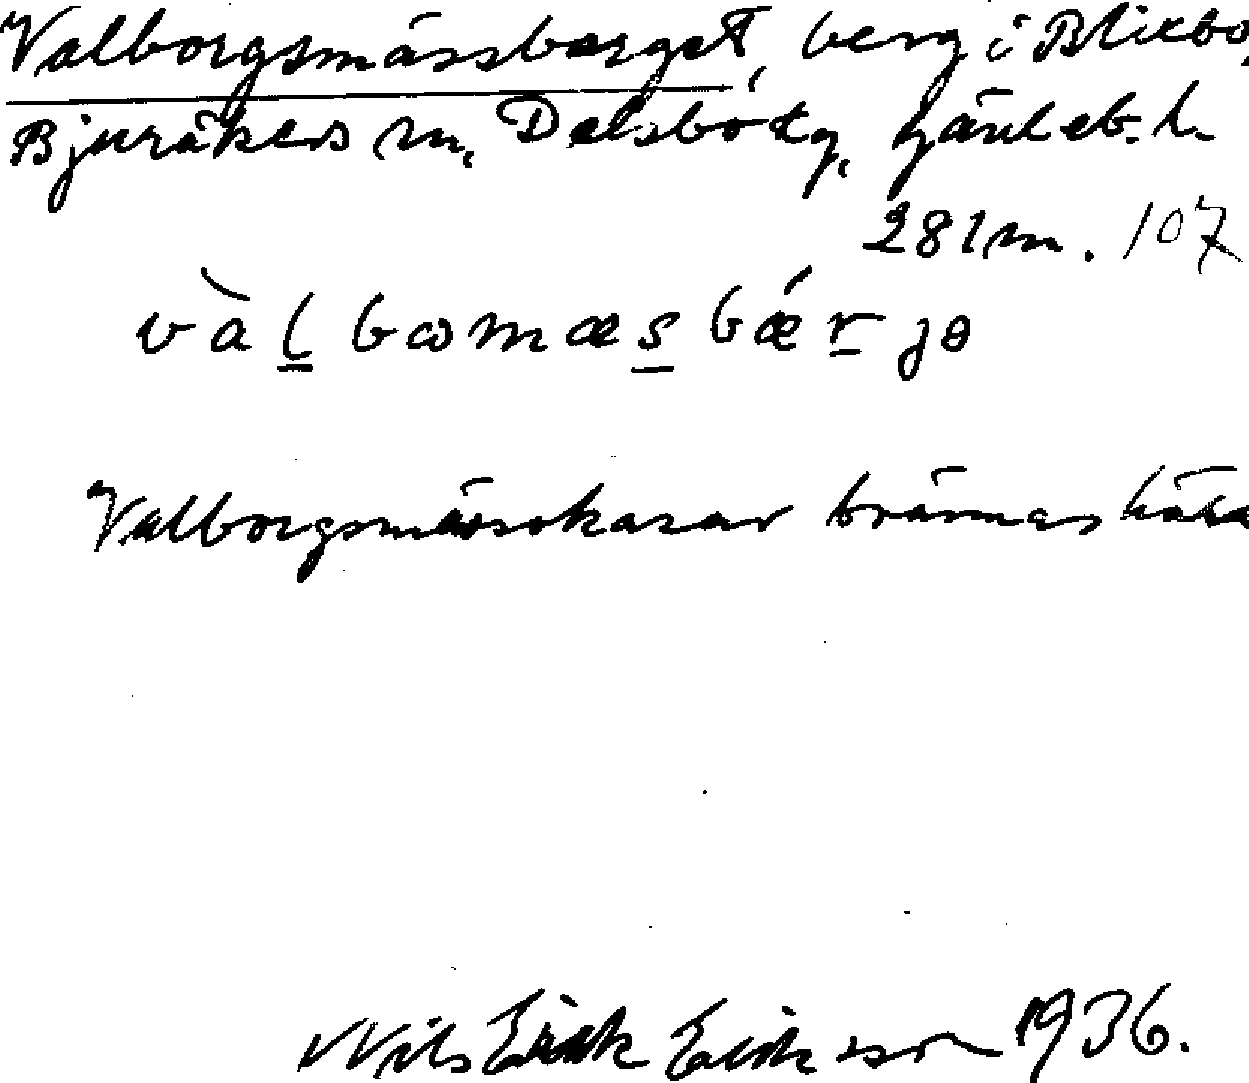 Valborgsmässberget, berg i Blixbo,
Bjuråkers sn, Delsbo tg, Gävleb. l.
281 m. 107
vàl bωmæs bǽr jə
Valborgsmässokasar brännas här
Nils Erik Eriksson 1936.